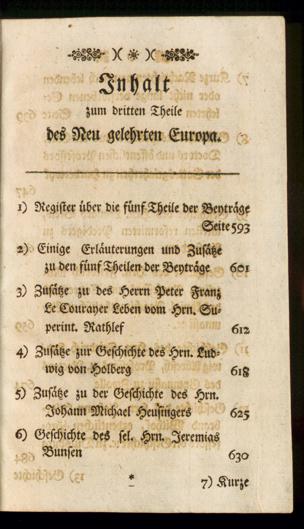 Inhalt
zum dritten Theile
des Neu gelehrten Europa.
1) Register über die fünf Theile der Beyträge
Seite 593
2) Einige Erläuterungen und Zusätze
zu den fünf Theilen der Beyträge 601
3) Zusätze zu des Herrn Peter Franz
Le Courayer Leben vom Hrn. Su-
perint. Rathlef 612
4) Zusätze zur Geschichte des Hrn. Lud-
wig von Holberg 618
5) Zusätze zu der Geschichte des Hrn.
Johann Michael Heusingers 625
6) Geschichte des sel. Hrn. Jeremias
Bunsen 630
* 7) Kurze